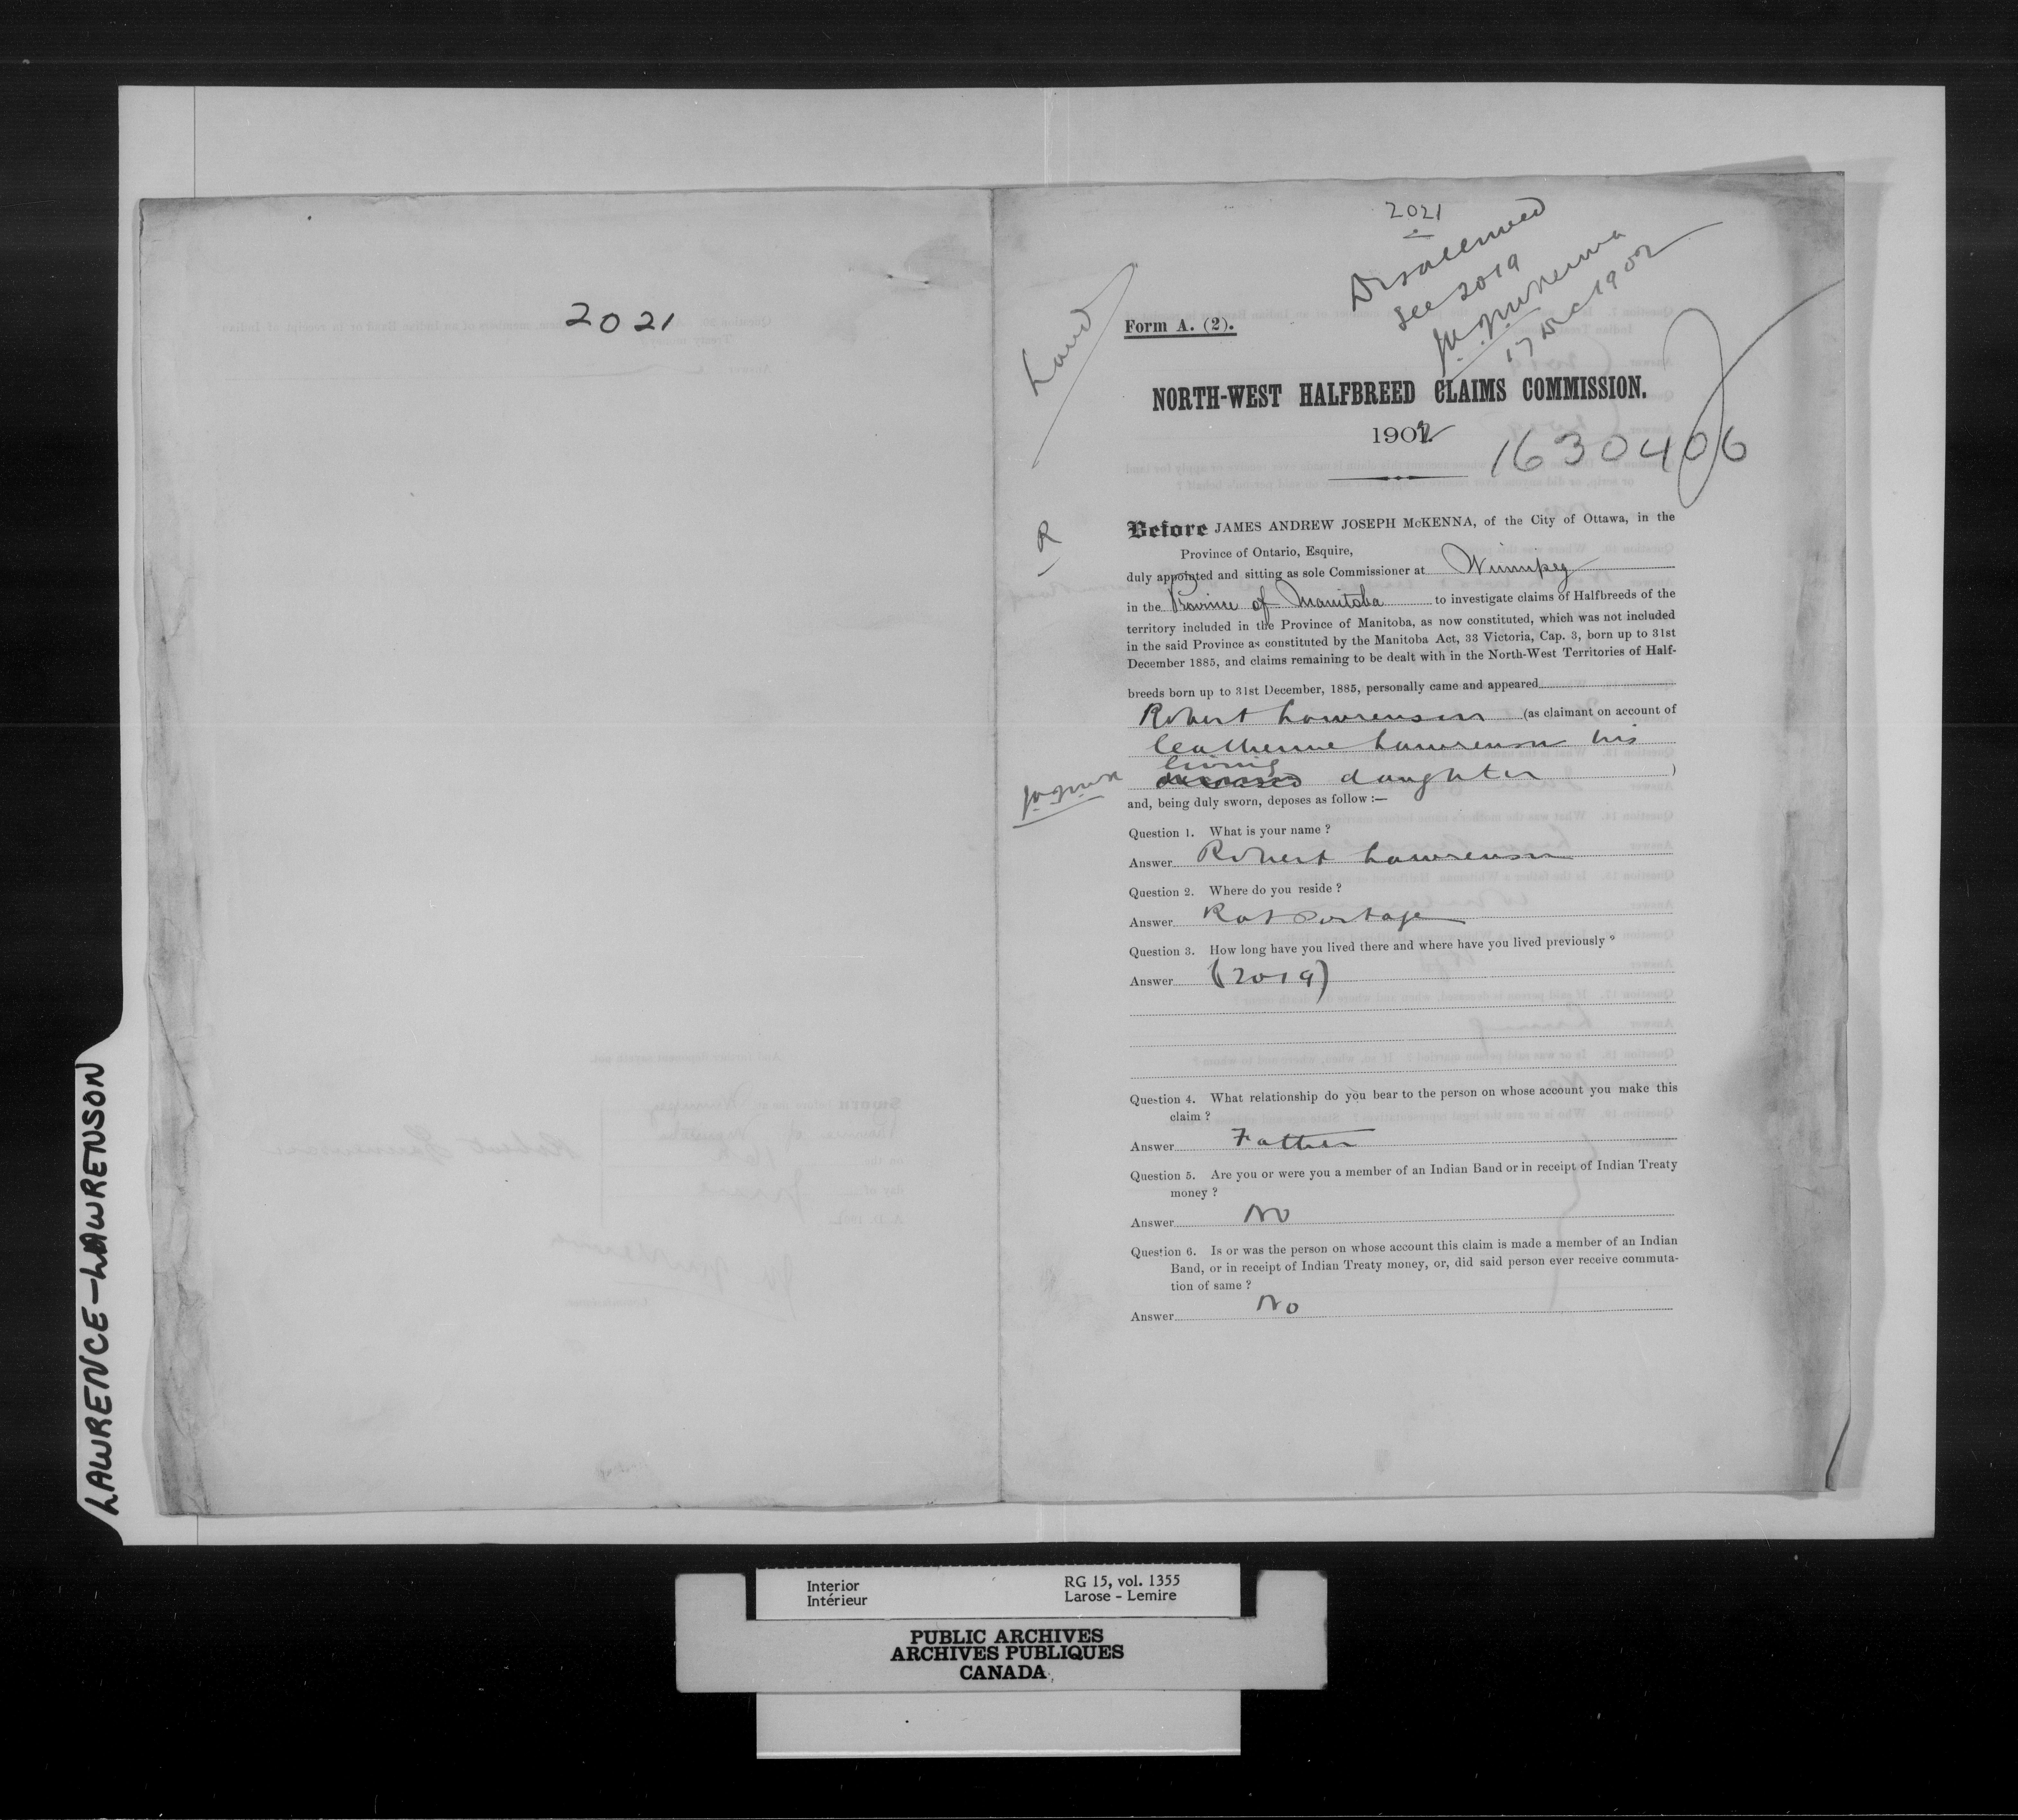 2021
LAWRENCE-LAWRENSON
2021
Disallowed
See 2019
J.A.J. McKenna
17 Dec 1902
Land
Form A. (2).
NORTH-WEST HALFBREED CLAIMS COMMISSION.
1902
1630406
R
Before JAMES ANDREW JOSEPH McKENNA, of the City of Ottawa, in the
Province of Ontario, Esquire,
duly appointed and sitting as sole Commissioner at Winnipeg
in the Province of Manitoba to investigate claims of Halfbreeds of the
territory included in the Province of Manitoba, as now constituted, which was not included
in the said Province as constituted by the Manitoba Act, 33 Victoria, Cap. 3, born up to 31st
December 1885, and claims remaining to be dealt with in the North-West Territories of Half-
breeds born up to 31st December, 1885, personally came and appeared
Robert Lawrenson (as claimant on account of
Catherine Lawrenson his
living
deceased daughter )
and, being duly sworn, deposes as follow :—
Question 1. What is your name ?
Answer Robert Lawrenson
Question 2. Where do you reside ?
Answer Rat Portage
Question 3. How long have you lived there and where have you lived previously ?
Answer (2019)
Question 4. What relationship do you bear to the person on whose account you make this
claim ?
Answer Father
Question 5. Are you or were you a member of an Indian Band or in receipt of Indian Treaty
money ?
Answer No
Question 6. Is or was the person on whose account this claim is made a member of an Indian
Band, or in receipt of Indian Treaty money, or, did said person ever receive commuta-
tion of same ?
Answer No
Interior
Intérieur
RG 15, vol. 1355
Larose - Lemire
PUBLIC ARCHIVES
ARCHIVES PUBLIQUES
CANADA